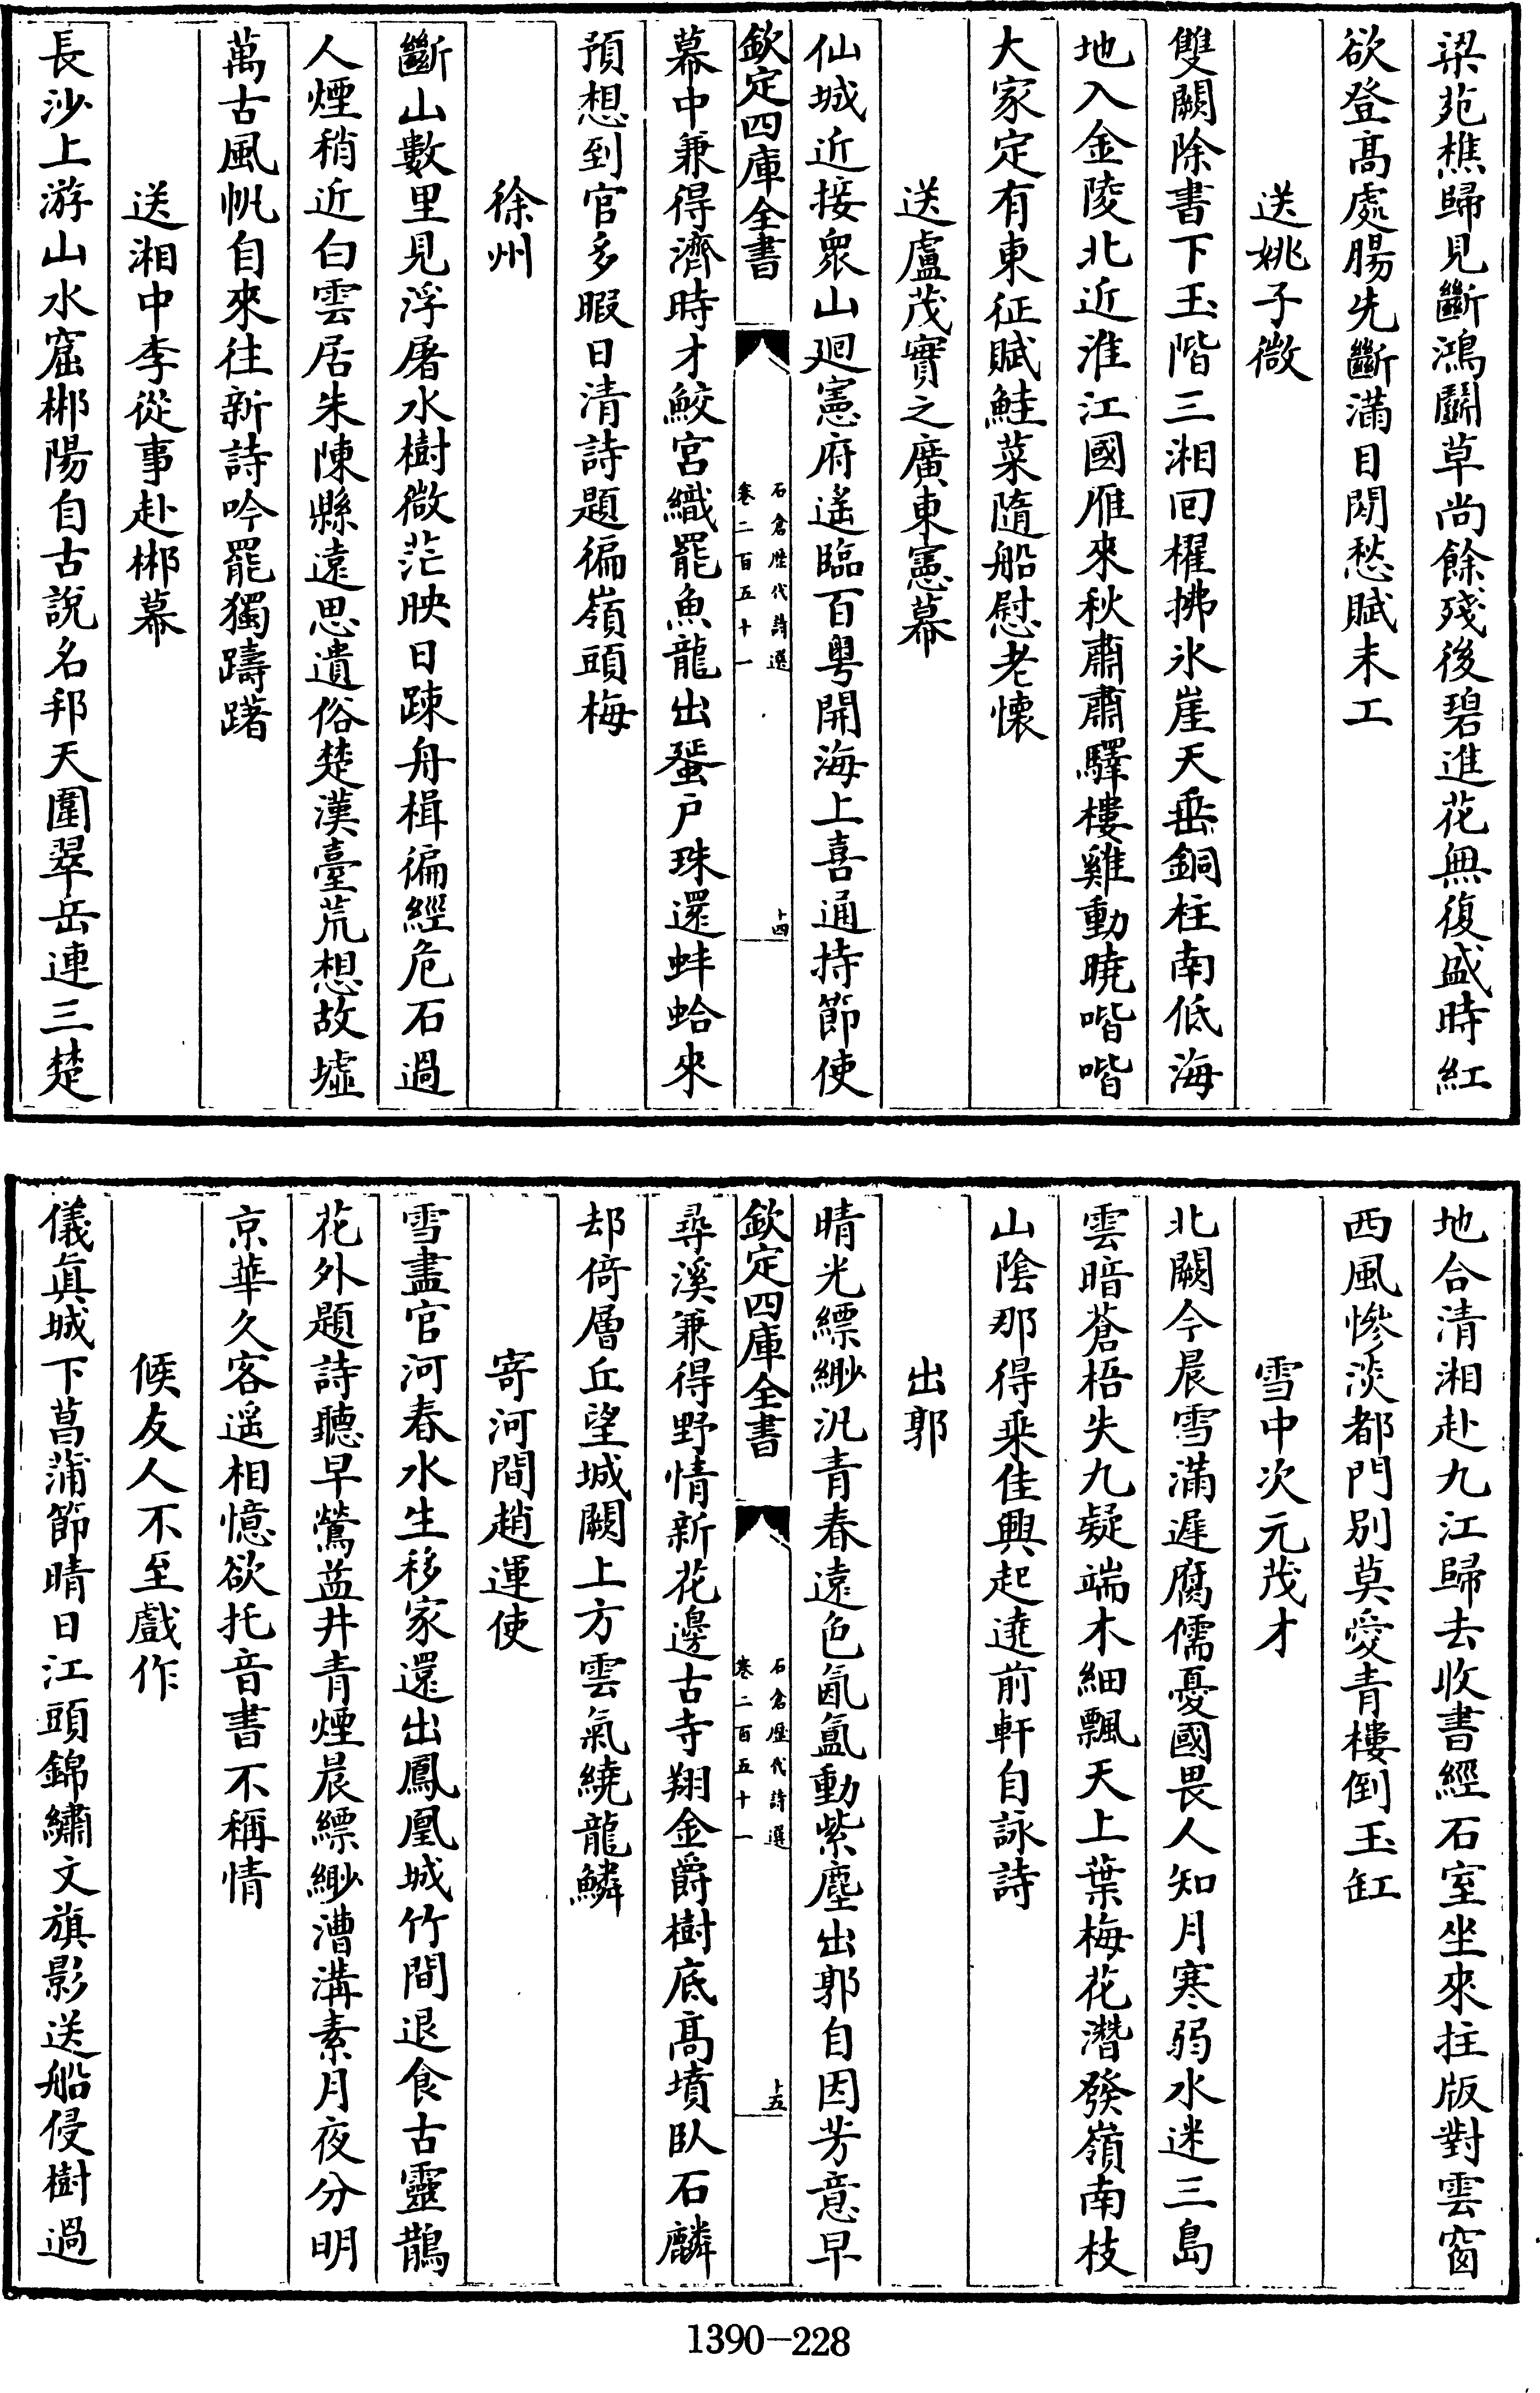 梁苑樵歸見斷鴻鬭草尚餘殘後碧進花無復盛時紅
欲登髙處腸先斷滿目閒愁賦未工
送姚子微
雙闕除書下玉階三湘回櫂拂氷崖天垂銅柱南低海
地入金陵北近淮江國雁來秋肅肅驛樓雞動曉喈喈
大家定有東征賦鮭菜隨船慰老懷
送盧茂實之廣東憲幕
仙城近接衆山迴憲府遙臨百粤開海上喜通持節使
欽定四庫全書
石倉歴代詩選
卷二百五十一
十四
幕中兼得濟時才鮫宮織罷魚龍出蜑户珠還蚌蛤來
預想到官多暇日清詩題徧嶺頭梅
徐州
斷山數里見浮屠水樹微茫映日踈舟楫徧經危石過
人煙稍近白雲居朱陳縣逺思遺俗楚漢臺荒想故墟
萬古風帆自來往新詩吟罷獨躊躇
送湘中李從事赴郴幕
長沙上游山水窟郴陽自古說名邦天圍翠岳連三楚
地合清湘赴九江歸去收書經石室坐來拄版對雲窗
西風慘淡都門別莫愛青樓倒玉缸
雪中次元茂才
北闕今晨雪滿遲腐儒憂國畏人知月寒弱水迷三島
雲暗蒼梧失九疑端木細飄天上葉梅花潛發嶺南枝
山隂那得乗佳興起遶前軒自詠詩
出郭
晴光縹緲汎青春逺色氤氲動紫塵出郭自因芳意早
欽定四庫全書
石倉歴代詩選
卷二百五十一
十五
尋溪兼得野情新花邊古寺翔金爵樹底髙墳臥石麟
却倚層丘望城闕上方雲氣繞龍鱗
寄河間趙運使
雪盡官河春水生移家還出鳳凰城竹間退食古靈鵲
花外題詩聽早鶯葢井青煙晨縹緲漕溝素月夜分明
京華久客遥相憶欲托音書不稱情
候友人不至戲作
儀真城下菖蒲節晴日江頭錦繡文旗影送船侵樹過
1390-228